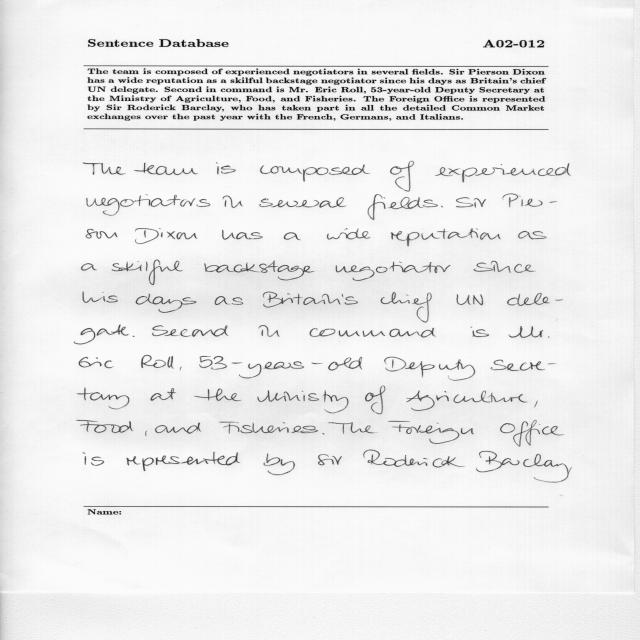 Sentence Database A02-012
The team is composed of experienced negotiators in several fields. Sir Pierson Dixon
has a wide reputation as a skilful backstage negotiator since his days as Britain's chief
UN delegate. Second in command is Mr. Eric Roll, 53-year-old Deputy Secretary at
the Ministry of Agriculture, Food, and Fisheries. The Foreign Office is represented
by Sir Roderick Barclay, who has taken part in all the detailed Common Market
exchanges over the past year with the French, Germans, and Italians.
The team is composed of experienced
negotiators in several fields. Sir Pier-
son Dixon has a wide reputation as
a skilful backstage negotiator since
his days as Britain's chief UN dele-
gate. Second in command is Mr.
Eric Roll, 53-years-old Deputy Secre-
tary at the Ministry of Agriculture,
Food, and Fisheries. The Foreign Office
is represented by Sir Roderick Barclay
Name: